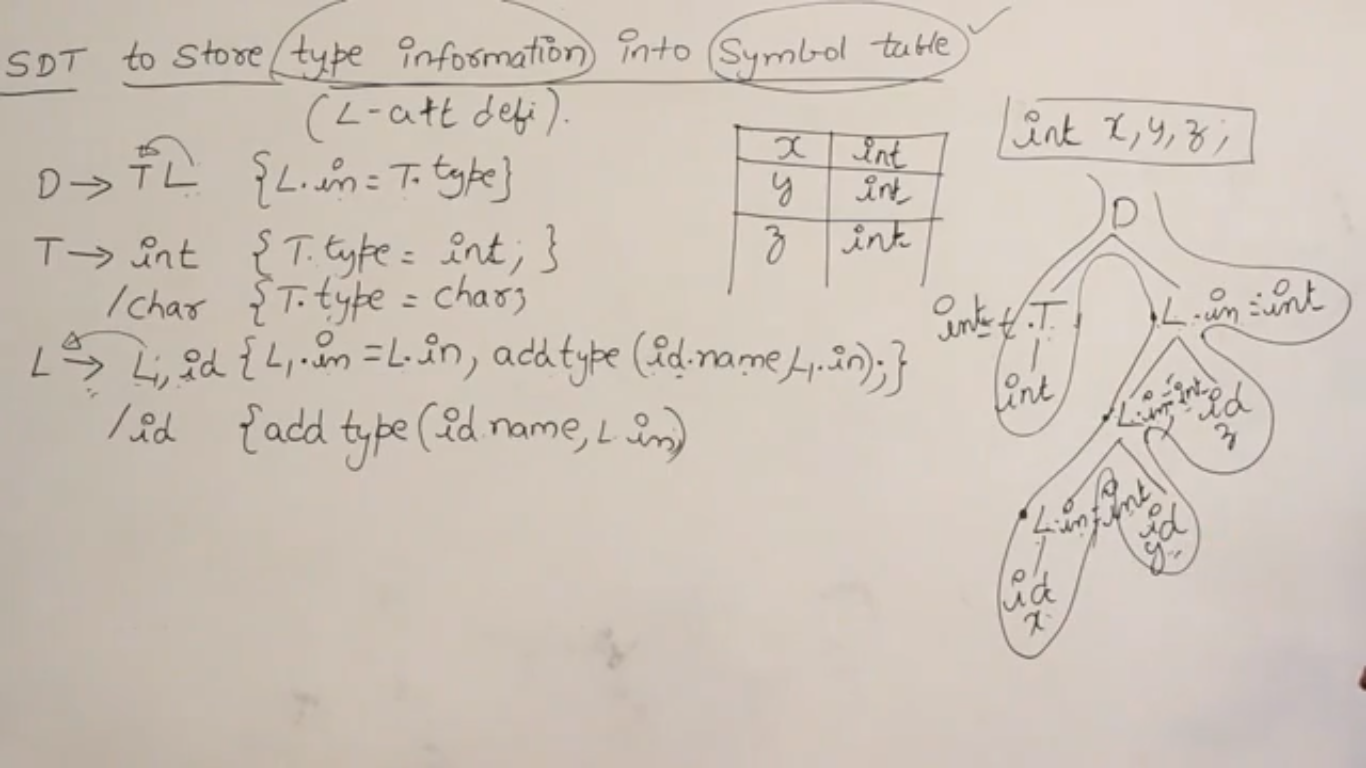 SDT to Store type information into Symbol table
(L-att defi).
D → T L {L.in = T.type}
T → int {T.type = int; }
/char {T.type = char;
L → L1, id {L1.in = L.in, addtype (id.name, L1.in);}
/id {add type (id.name, L.in)
x int
y int
z int
int x, y, z;
D
int = t.T
L.in = int
int
L.in = int
id
z
L.in = int
id
y
id
x